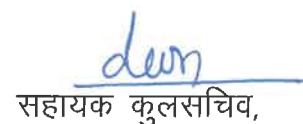 सहायक कुलसचिव,